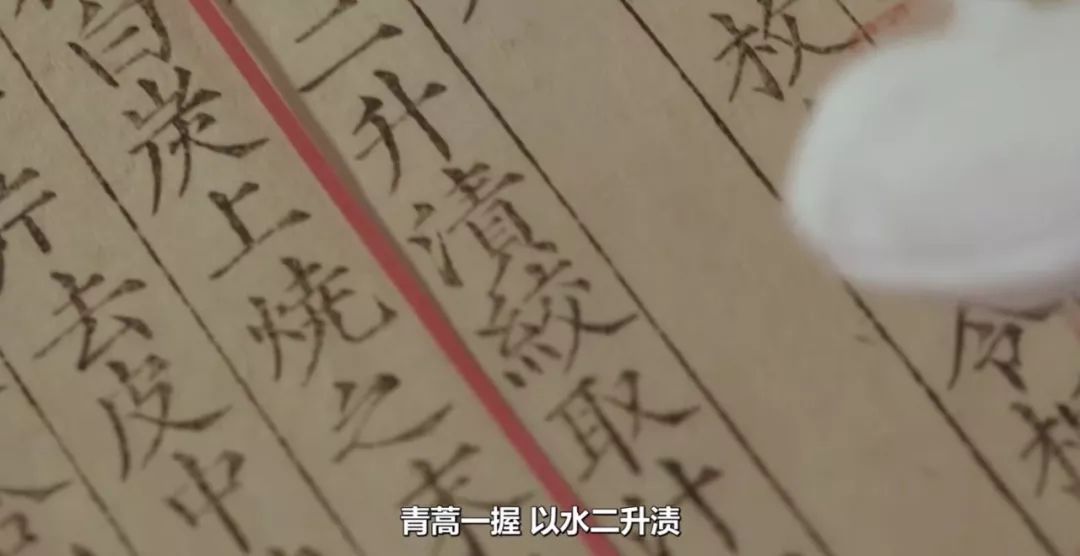 令
二升漬絞取汁
炭上燒之末
去皮中
青蒿一握 以水二升渍